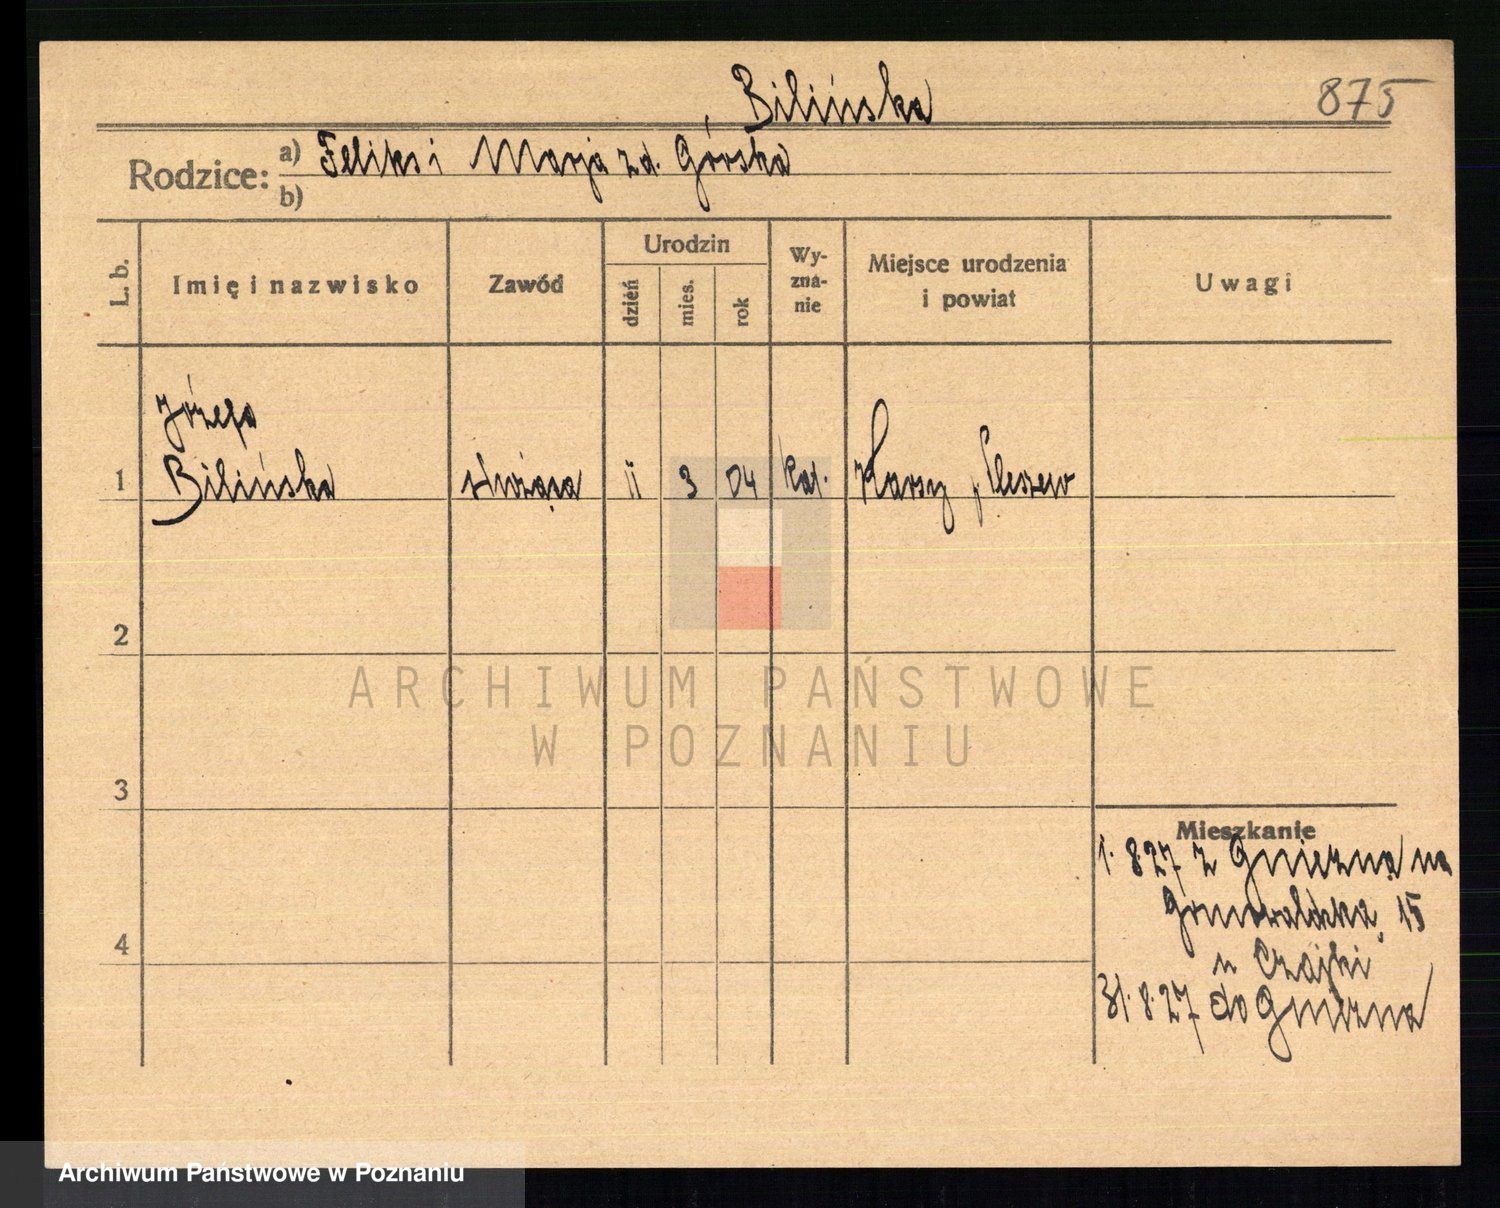 Bilińska
875
Rodzice: a) Feliks i Marja zd. Górska
b)
L. b.
Imię i nazwisko
Zawód
Urodzin
dzień
mies.
rok
Wy-
zna-
nie
Miejsce urodzenia
i powiat
Uwagi
Józefa
1 Bilińska służąca 11 3 04 kat. Karsy p. Pleszew
2
ARCHIWUM PAŃSTWOWE
W POZNANIU
3
Mieszkanie
1.8.27 z Gniezna na
Grunwaldzka 15
u Czajki
4
31.8.27 do Gniezna
Archiwum Państwowe w Poznaniu